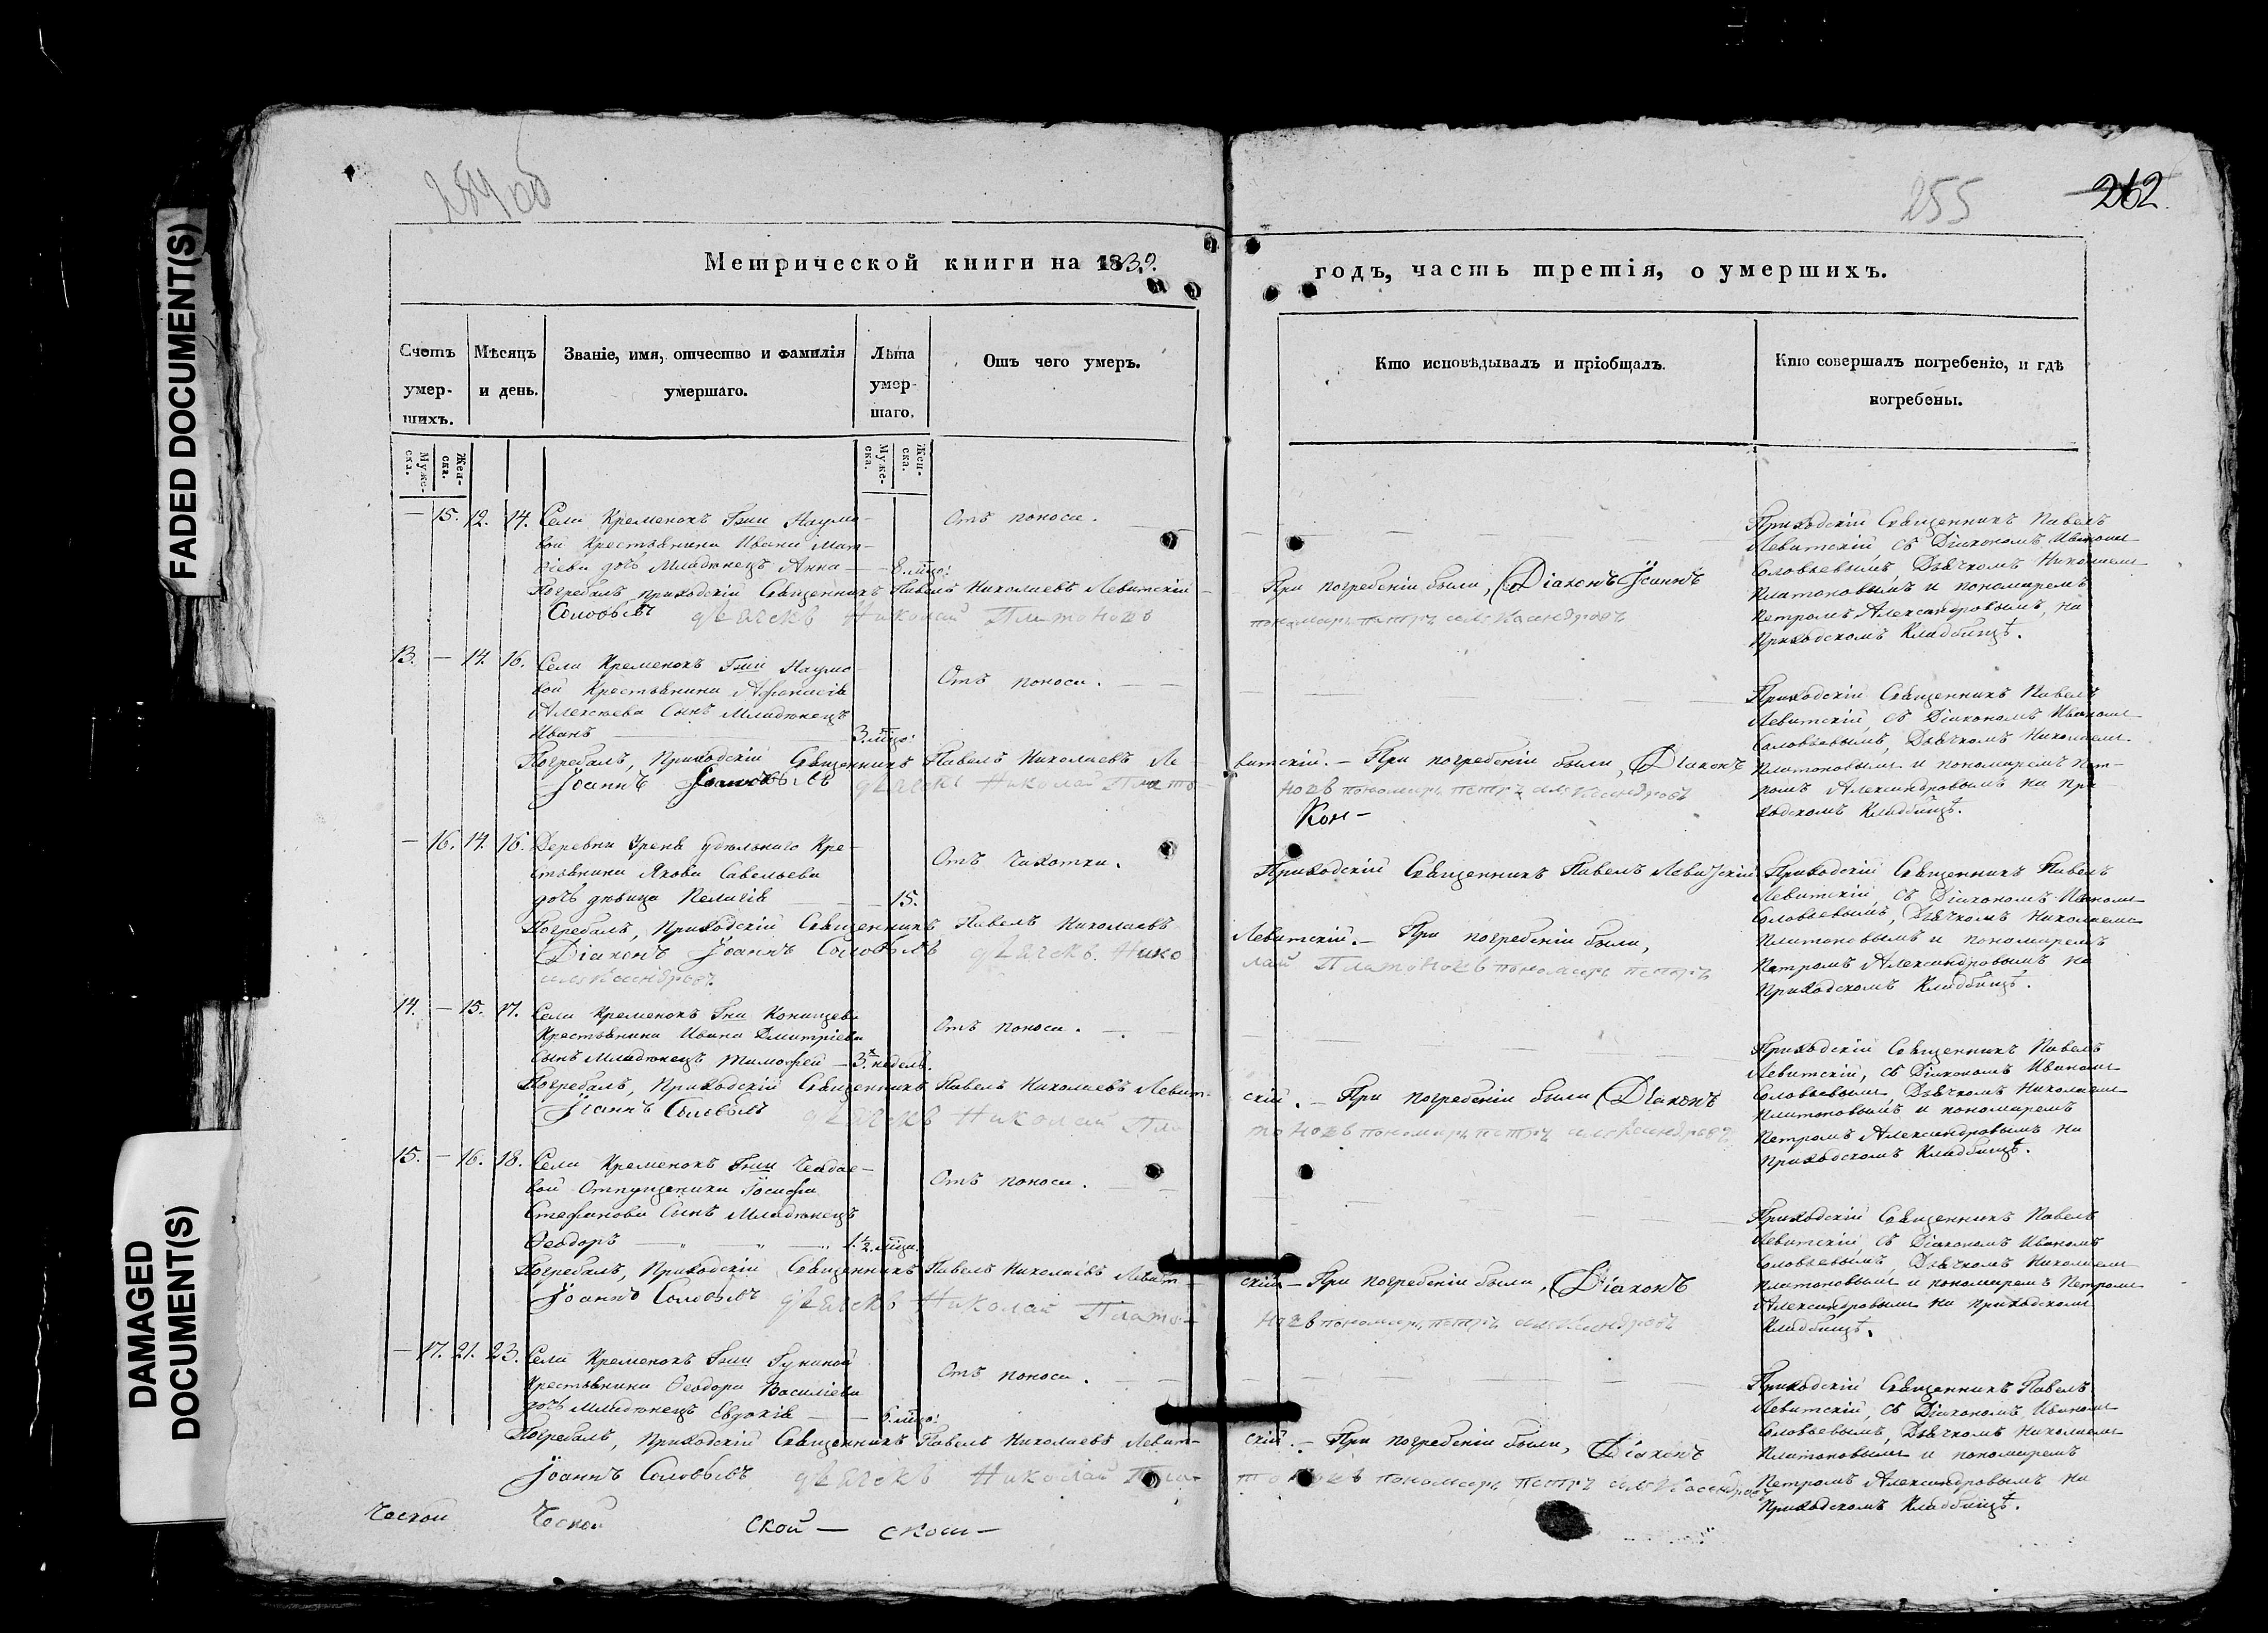 FADED DOCUMENT(S)
DAMAGED
DOCUMENT(S)
254 об
255
262
Метрической книги на 1839.
годъ, часть третія, о умершихъ.
Счетъ умер-шихъ.
Мѣсяцъ и день.
Званіе, имя, отчество и фамилія умершаго.
Лѣта умер-шаго.
Отъ чего умеръ.
Кто исповѣдывалъ и пріобщалъ.
Кто совершалъ погребеніе, и гдѣ погребены.
Муже-ска.
Жен-ска.
Муже-ска.
Жен-ска.
— 15. 12. 14. Села Кременокъ Гжи Наумо-
вой Крестьянина Ивана Мат-
ѳіева дочь Младенецъ Анна — 8. мцо:
Отъ поноса.
Приходскій Священникъ Павелъ
Левитскій, съ Діакономъ Иваномъ
Соловьевымъ, Дьячкомъ Николаемъ
Платоновымъ и пономаремъ
Петромъ Александровымъ, на
Приходскомъ Кладбищѣ.
Погребалъ приходскій Священникъ Павелъ Николаевъ Левитскій
При погребеніи были, Діаконъ Іоаннъ
Соловьевъ дьячекъ Николай Платоновъ
пономарь петръ александровъ
13. — 14. 16. Села Кременокъ Гжи Наумо-
вой Крестьянина Афанасія
Алексѣева Сынъ Младенецъ
Иванъ — 3. мцо:
Отъ поноса.
Приходскій Священникъ Павелъ
Левитскій, съ Діакономъ Иваномъ
Соловьевымъ, Дьячкомъ Николаемъ
Платоновымъ и пономаремъ Пет-
ромъ Александровымъ на при-
ходскомъ Кладбищѣ.
Погребалъ, Приходскій Священникъ Павелъ Николаевъ Ле-
витскій. — При погребеніи были, Діаконъ
Іоаннъ дьячекъ Николай Плато-
новъ пономарь петръ александровъ
Кон-
— 16. 14. 16. Деревни Урена удѣльнаго Кре-
стьянина Якова Савельева
дочь дѣвица Пелагія — 15.
Отъ Чахотки.
Приходскій Священникъ Павелъ Левитскій
Приходскій Священникъ Павелъ
Левитскій, съ Діакономъ Иваномъ
Соловьевымъ, Дьячкомъ Николаемъ
Платоновымъ и пономаремъ
Петромъ Александровымъ на
Приходскомъ Кладбищѣ.
Погребалъ, Приходскій Священникъ Павелъ Николаевъ
Левитскій. — При погребеніи были,
Діаконъ Іоаннъ Соловьевъ дьячекъ. Нико
лай Платоновъ пономарь петръ
александровъ
14. — 15. 17. Села Кременокъ Гжи Конищева
Крестьянина Ивана Дмитріева
Сынъ Младенецъ Тимофей — 3.х недель.
Отъ поноса.
Приходскій Священникъ Павелъ
Левитскій, съ Діакономъ Иваномъ
Соловьевымъ, Дьячкомъ Николаемъ
Платоновымъ и пономаремъ
Петромъ Александровымъ на
приходскомъ Кладбищѣ.
Погребалъ, Приходскій Священникъ Павелъ Николаевъ Левит-
скій. — При погребеніи были, Діаконъ
Іоаннъ Соловьевъ дьячекъ Николай Пла
тоновъ пономарь петръ александровъ
15. — 16. 18. Села Кременокъ Гжи
вой Отпущеника Іосифа
Стефанова Сынъ Младенецъ
Ѳеодоръ — 1.½. мцы.
Отъ поноса.
Приходскій Священникъ Павелъ
Левитскій съ Діакономъ Иваномъ
Соловьевымъ, Дьячкомъ Николаемъ
Платоновымъ и пономаремъ Петромъ
Александровымъ на приходскомъ
Кладбищѣ.
Погребалъ, Приходскій Священникъ Павелъ Николаевъ Левит-
скій — При погребеніи были, Діаконъ
Іоаннъ Соловьевъ дьячекъ Николай Плато-
новъ пономарь петръ александровъ
— 17. 21. 23. Села Кременокъ Гжи Гунимой
Крестьянина Ѳеодора Василіева
дочь Младенецъ Евдокія — 6. мцо:
Отъ поноса.
Приходскій Священникъ Павелъ
Левитскій, съ Діакономъ Иваномъ
Соловьевымъ, Дьячкомъ Николаемъ
Платоновымъ и пономаремъ
Петромъ Александровымъ на
Приходскомъ Кладбищѣ.
Погребалъ, Приходскій Священникъ Павелъ Николаевъ Левит-
скій. — При погребеніи были, Діаконъ
Іоаннъ Соловьевъ дьячекъ Николай Пла-
тоновъ пономарь петръ александровъ
скои —